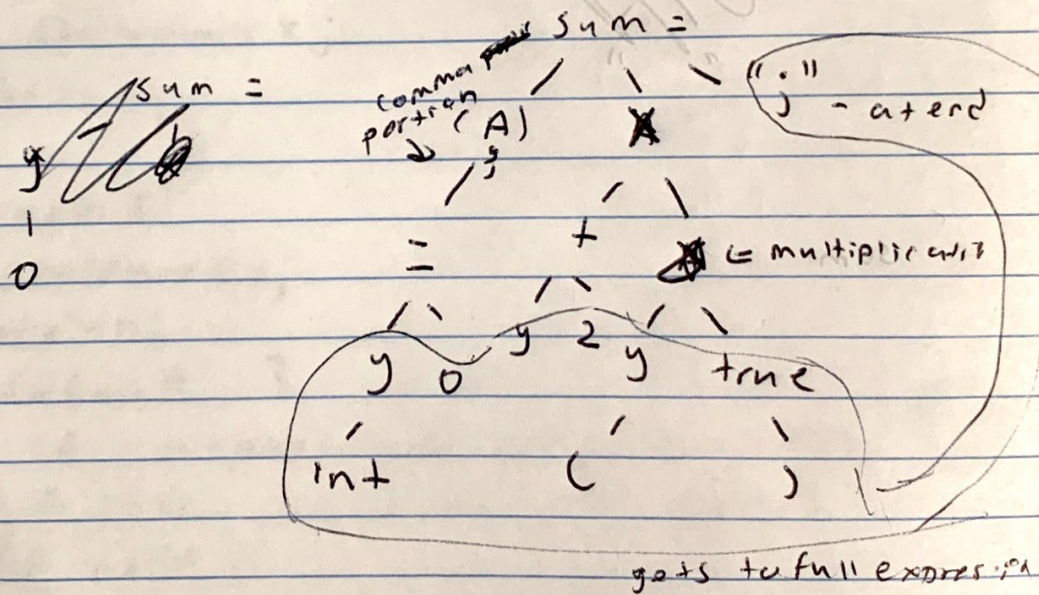 sum =
sum =
comma
portion
(A)
";" - at end
y
1
0
;
=
+
<= multiplication
y 0 y 2 y true
int ( )
gets to full expression